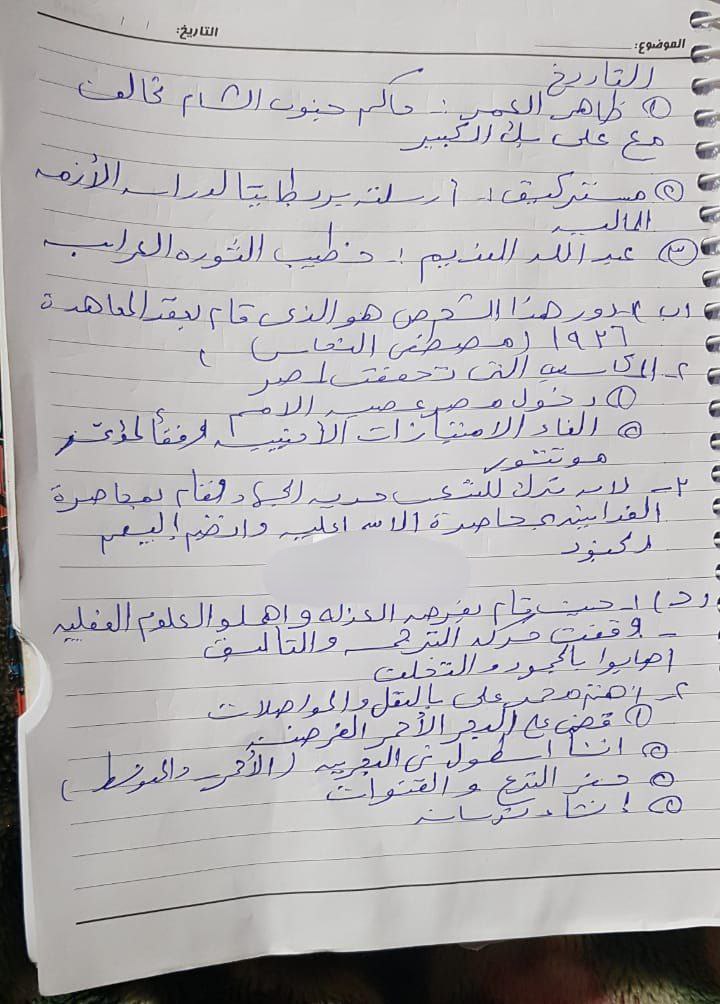 الموضوع: التاريخ: / /
التاريخ
① ظاهر العمر :- حاكم جنوب الشام تحالف
مع على بك الكبير
② مستر كيف :- أرسلته بريطانيا لدراسه الأزمه
الماليه
③ عبد الله النديم :- خطيب الثوره العرابيه
(ب) ١- دور هذا الشخص هو الذى قام بعقد المعاهدة
١٩٣٦ (مصطفى النحاس)
٢- المكاسب التى تحققت لمصر
① دخول مصر عصبه الامم
② الغاء الامتيازات الأجنبيه وفقاً لمؤتمر
مونتنور
٣- لانه ترك للشعب حريه الجهاد فقام بمحاصرة
الفدايين محاصرة الاسماعليه وانضم إليهم
الجنود
(د) ١- حيث قام بفرض العزله و اهملو العلوم العقليه
- وقفت حركه الترجمه والتاليف
اصابوا بالجمود والتخلف
٢- اهتم محمد على بالنقل والمواصلات
① قضى على البحر الأحمر القرصنه
② انشأ اسطول فى البحريه (الأحمر والمتوسط)
③ حفر الترع والقنوات
④ انشاء ترسانه